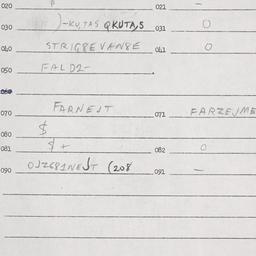 020 021 -
030 )-KUTAS QKUTA,S 031 0
040 STRIG8EVAN8E 041 0
050 FALD2-
060
070 FARNEJT 071 FARZEJME
080 $
081 $ + 082 0
090 OJZ681NEJT (208 091 -